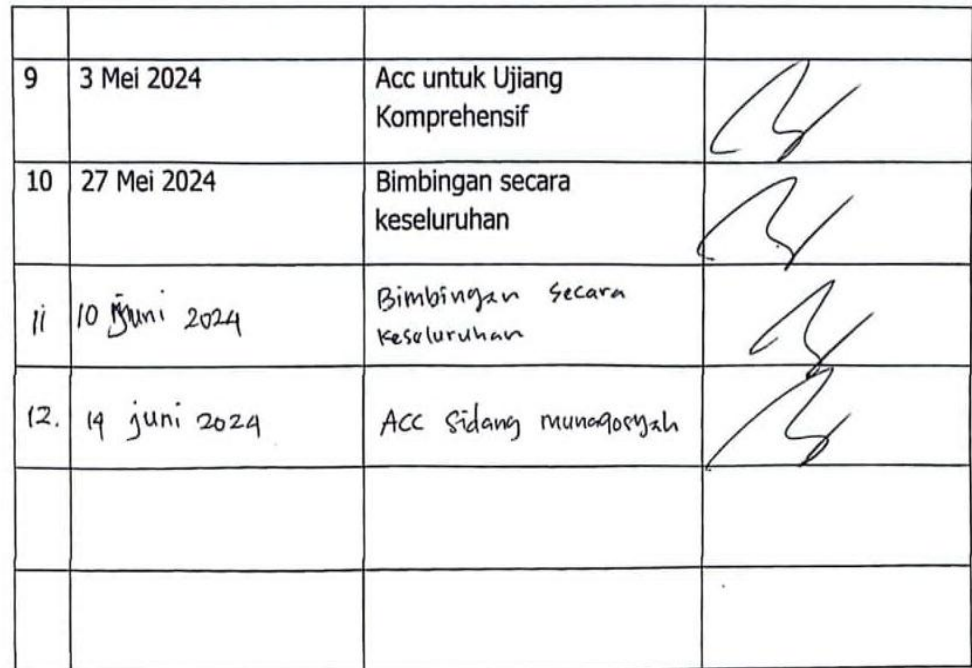 9 3 Mei 2024 Acc untuk Ujiang
Komprehensif
10 27 Mei 2024 Bimbingan secara
keseluruhan
11 10 Juni 2024 Bimbingan secara
keseluruhan
12. 14 juni 2024 ACC Sidang munaqosyah